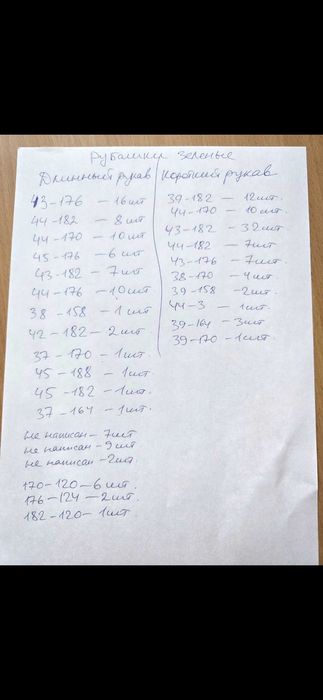 Рубашки зеленые
Длинный рукав
43-176 - 16 шт
44-182 - 8 шт
44-170 - 10 шт
45-176 - 6 шт
43-182 - 7 шт
44-176 - 10 шт
38-158 - 1 шт
42-182 - 2 шт
37-170 - 1 шт.
45-188 - 1 шт.
45-182 - 1 шт.
37-164 - 1 шт.
не написан - 7 шт
не написан - 9 шт
не написан - 2 шт.
170-120 - 6 шт.
176-124 - 2 шт.
182-120 - 1 шт.
Короткий рукав
39-182 - 12 шт.
44-170 - 10 шт.
43-182 - 32 шт
44-182 - 7 шт
43-176 - 7 шт.
38-170 - 4 шт.
39-158 - 2 шт.
44-3 - 1 шт.
39-164 - 3 шт
39-170 - 1 шт.